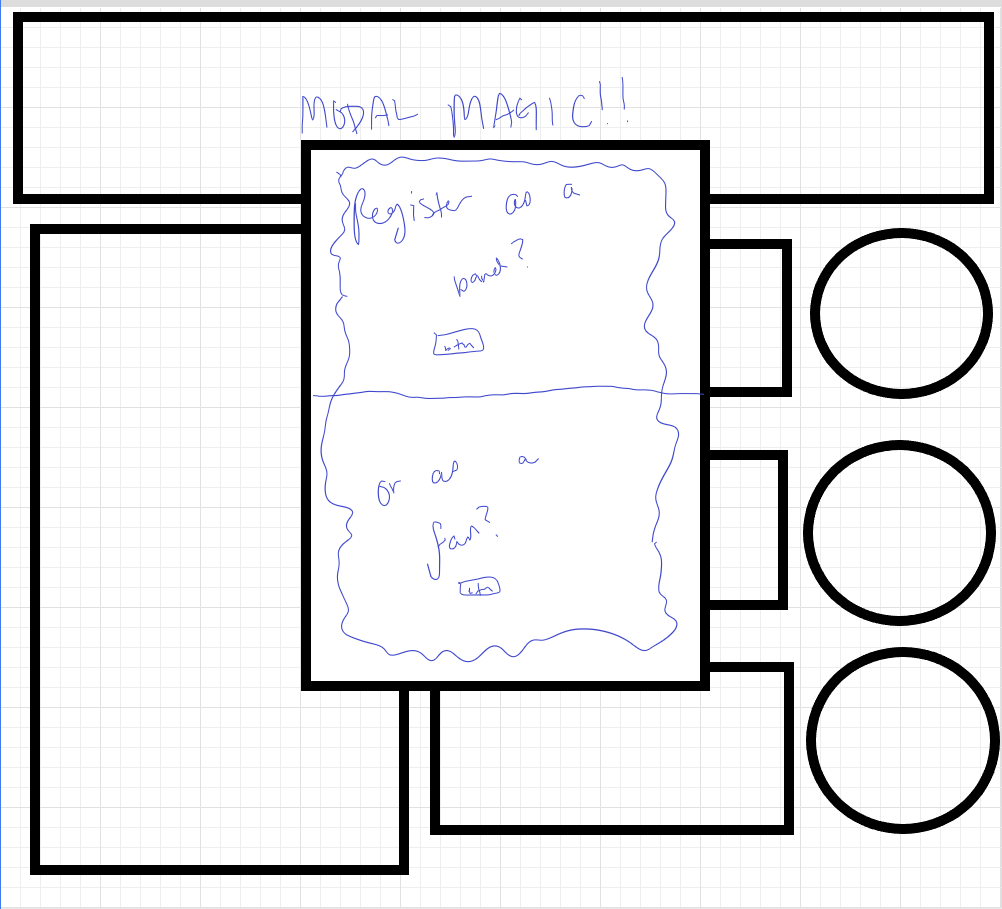 MODAL MAGIC!!
Register as a
band?
btn
or as a
fan?
btn